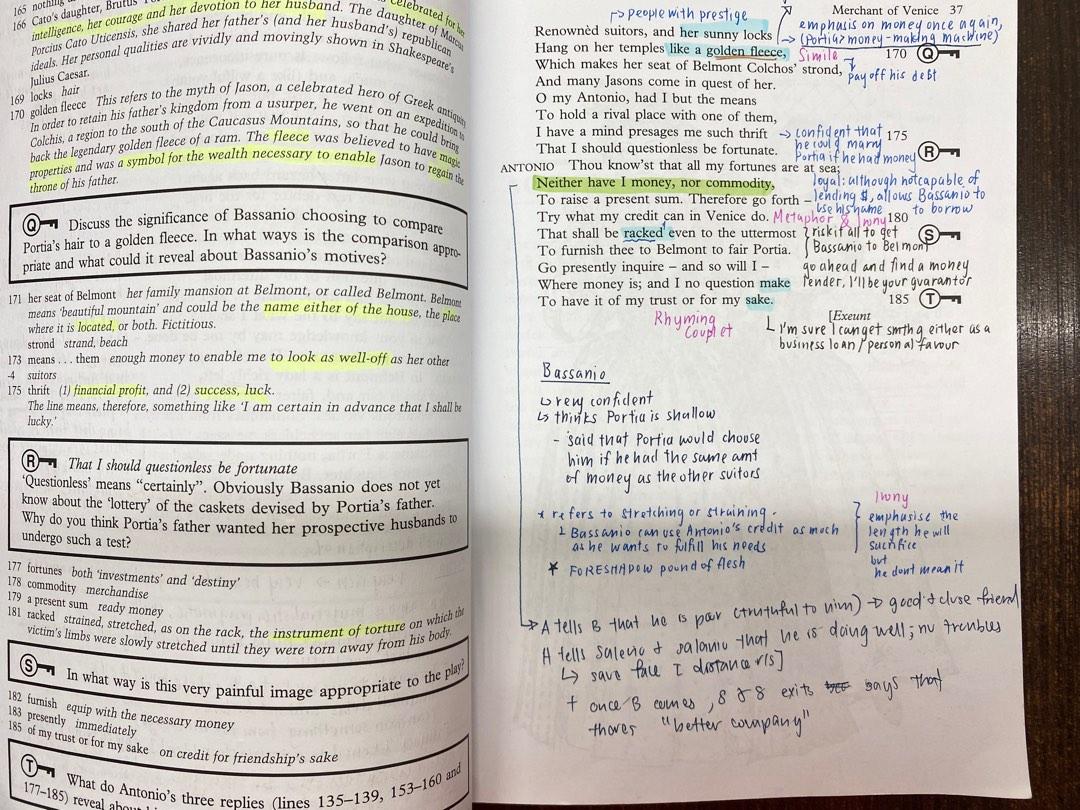 165 nothing
celebrated for her
166 Cato's daughter, Brutus'
intelligence, her courage and her devotion to her husband. The daughter of Marcus
Porcius Cato Uticensis, she shared her father's (and her husband's) republican
ideals. Her personal qualities are vividly and movingly shown in Shakespeare's
Julius Caesar.
169 locks hair
170 golden fleece This refers to the myth of Jason, a celebrated hero of Greek antiquity
In order to retain his father's kingdom from a usurper, he went on an expedition to
Colchis, a region to the south of the Caucasus Mountains, so that he could bring
back the legendary golden fleece of a ram. The fleece was believed to have magic
properties and was a symbol for the wealth necessary to enable Jason to regain the
throne of his father.
Q Discuss the significance of Bassanio choosing to compare
Portia's hair to a golden fleece. In what ways is the comparison appro-
priate and what could it reveal about Bassanio's motives?
171 her seat of Belmont her family mansion at Belmont, or called Belmont. Belmont
means 'beautiful mountain' and could be the name either of the house, the place
where it is located, or both. Fictitious.
strond strand, beach
173 means . . . them enough money to enable me to look as well-off as her other
-4 suitors
175 thrift (1) financial profit, and (2) success, luck.
The line means, therefore, something like 'I am certain in advance that I shall be
lucky.'
R That I should questionless be fortunate
'Questionless' means "certainly". Obviously Bassanio does not yet
know about the 'lottery' of the caskets devised by Portia's father.
Why do you think Portia's father wanted her prospective husbands to
undergo such a test?
177 fortunes both 'investments' and 'destiny'
178 commodity merchandise
179 a present sum ready money
181 racked strained, stretched, as on the rack, the instrument of torture on which the
victim's limbs were slowly stretched until they were torn away from his body.
S In what way is this very painful image appropriate to the play?
182 furnish equip with the necessary money
183 presently immediately
185 of my trust or for my sake on credit for friendship's sake
T What do Antonio's three replies (lines 135–139, 153–160 and
177–185) reveal about
Merchant of Venice 37
people with prestige
emphasis on money once again,
(Portia = money-making machine)
Renownèd suitors, and her sunny locks
Hang on her temples like a golden fleece, Simile 170 Q
Which makes her seat of Belmont Colchos' strond,
pay off his debt
And many Jasons come in quest of her.
O my Antonio, had I but the means
To hold a rival place with one of them,
I have a mind presages me such thrift → confident that 175
he could marry
That I should questionless be fortunate. Portia if he had money R
ANTONIO Thou know'st that all my fortunes are at sea;
Neither have I money, nor commodity, loyal: although not capable of
To raise a present sum. Therefore go forth – lending $, allows Bassanio to
use his name to borrow
Try what my credit can in Venice do. Metaphor & Irony 180
That shall be racked even to the uttermost risk it all to get S
To furnish thee to Belmont to fair Portia. Bassanio to Belmont
Go presently inquire – and so will I – go ahead and find a money
Where money is; and I no question make lender, I'll be your guarantor
To have it of my trust or for my sake. 185 T
[Exeunt
Rhyming
Couplet
I'm sure I can get smthg either as a
business loan / personal favour
Bassanio
↳ very confident
↳ thinks Portia is shallow
- said that Portia would choose
him if he had the same amt
of money as the other suitors
* refers to stretching or straining.
Bassanio can use Antonio's credit as much
as he wants to fulfill his needs
* FORESHADOW pound of flesh
Irony
emphasise the
length he will
sacrifice
but
he dont mean it
→ A tells B that he is poor (truthful to him) → good & close friend
A tells Salerio & Salanio that he is doing well; no troubles
↳ save face [distance r/s]
+ once B comes, S & S exits says that
"better company"